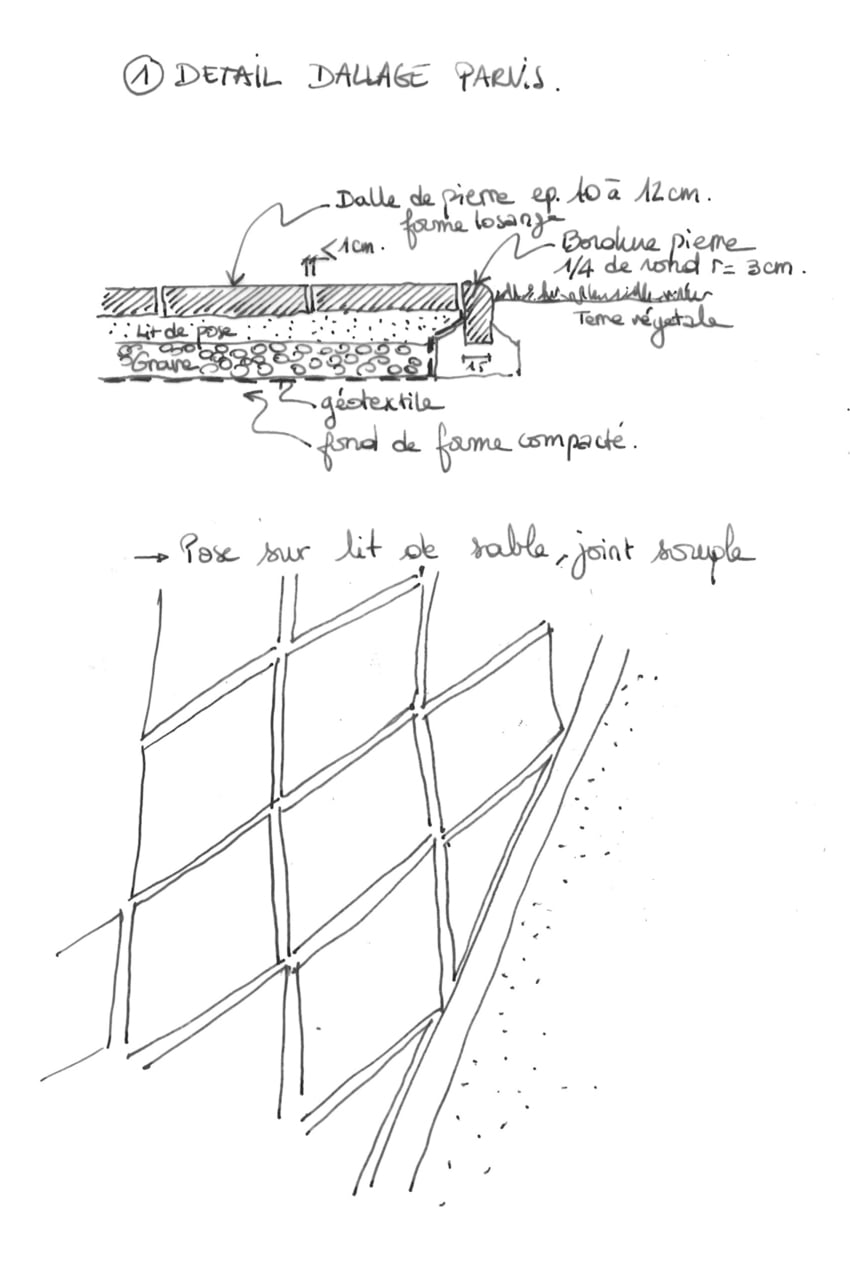 ① DETAIL DALLAGE PARVIS.
Dalle de pierre ep. 10 à 12 cm.
forme losange
<1cm.
Bordure pierre
1/4 de rond r= 3cm.
Terre végetale
Lit de pose
Grave
15
géotextile
fond de forme compacté.
→ Pose sur lit de sable, joint souple